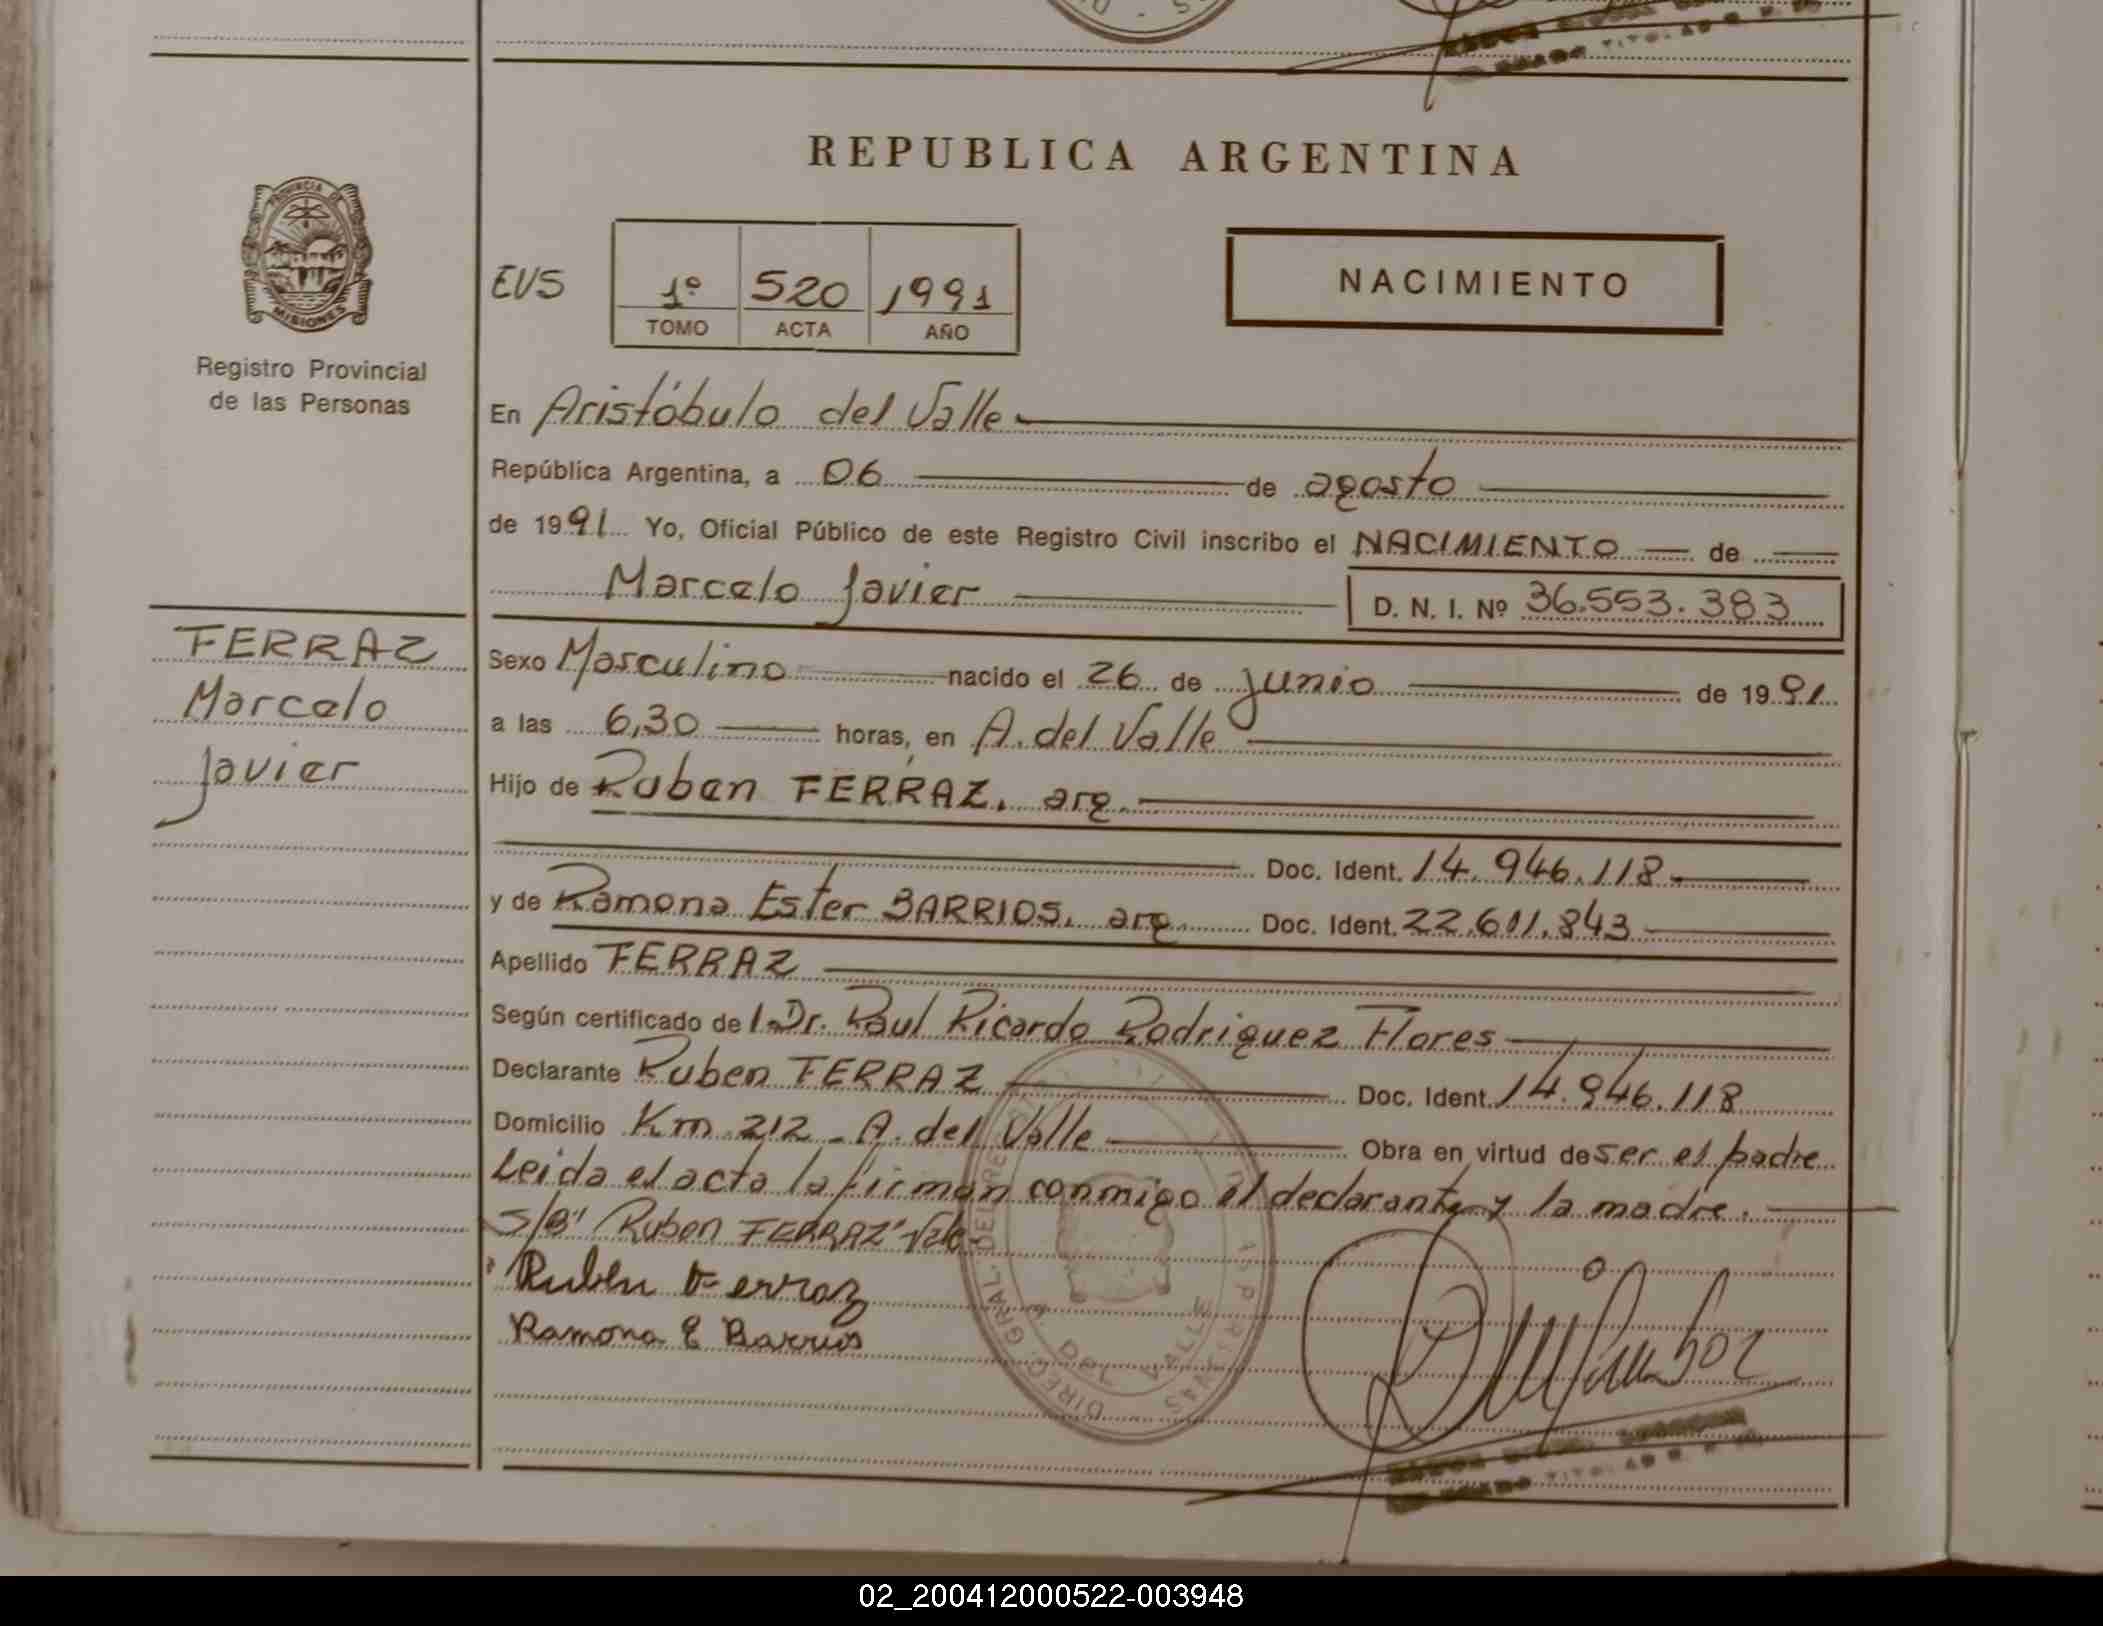 REPUBLICA ARGENTINA
PROVINCIA DE MISIONES
Registro Provincial
de las Personas
EVS
1º 520 1991
TOMO ACTA AÑO
NACIMIENTO
En Aristóbulo del Valle
República Argentina, a 06 de agosto
de 1991 Yo, Oficial Público de este Registro Civil inscribo el NACIMIENTO de
Marcelo Javier D. N. I. Nº 36.553.383
FERRAZ
Marcelo
Javier
Sexo Masculino nacido el 26 de junio de 1991
a las 6,30 horas, en A. del Valle
Hijo de Ruben FERRAZ. arg.
Doc. Ident. 14.946.118
y de Ramona Ester BARRIOS. arg. Doc. Ident. 22.611.843
Apellido FERRAZ
Según certificado del Dr. Raul Ricardo Rodriguez Flores
Declarante Ruben FERRAZ Doc. Ident. 14.946.118
Domicilio Km 212 - A. del Valle Obra en virtud de ser el padre
Leida el acta la firman conmigo el declarante y la madre.
S/B" Ruben FERRAZ" Vale
Ruben Ferraz
Ramona E Barrios
DIREC. GRAL. DEL
DEL VALLE
02_200412000522-003948